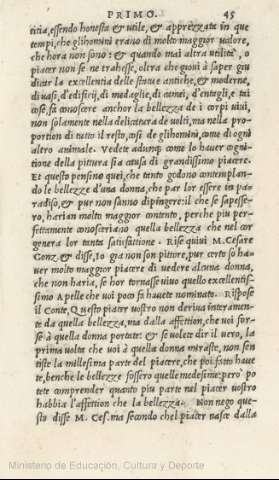 PRIMO. 45
titia, essendo honesta & utile, & apprezzata in que
tempi, che glihomini erano di molto maggior ualore,
che hora non sono: & quando mai altra utilità, o
piacer non se ne trahesse, oltra che gioui à saper giu
dicar la excellentia delle statue antiche, & moderne,
di uasi, d'edificij, di medaglie, di camei, d'entagli, e tai
cose, fa conoscere anchor la bellezza de i corpi uiui,
non solamente nella delicatura de uolti, ma nella pro=
portion di tutto il resto, cosi de glihomini, come di ogni
altro animale. Vedete adunq; come lo hauer cogni=
tione della pittura sia causa di grandissimo piacere.
Et questo pensino quei, che tanto godono contemplan=
do le bellezze d'una donna, che par lor essere in pa=
radiso, & pur non sanno dipingere: il che se sapesse=
ro, harian molto maggior contento, perche piu per=
fettamente conosceriano quella bellezza che nel cor
genera lor tanta satisfattione. Rise quiui M. Cesare
Gonz. & disse, Io gia non son pittore, pur certo so ha=
uer molto maggior piacere di uedere alcuna donna,
che non haria, se hor tornasse uiuo quello excellentis=
simo Apelle che uoi poco fa hauete nominato. Rispose
il Conte, Questo piacer uostro non deriua interamen=
te da quella bellezza, ma dalla affettion, che uoi for=
se à quella donna portate: & se uolete dir il uero, la
prima uolta che uoi à quella donna miraste, non sen
tiste la millesima parte del piacere, che poi fatto haue
te, benche le bellezze fossero quelle medesime: però po=
tete comprender quanto piu parte nel piacer uostro
habbia l'affettion che la bellezza. Non nego que=
sto disse M. Ces. ma secondo chel piacer nasce dalla
Ministerio de Educación, Cultura y Deporte